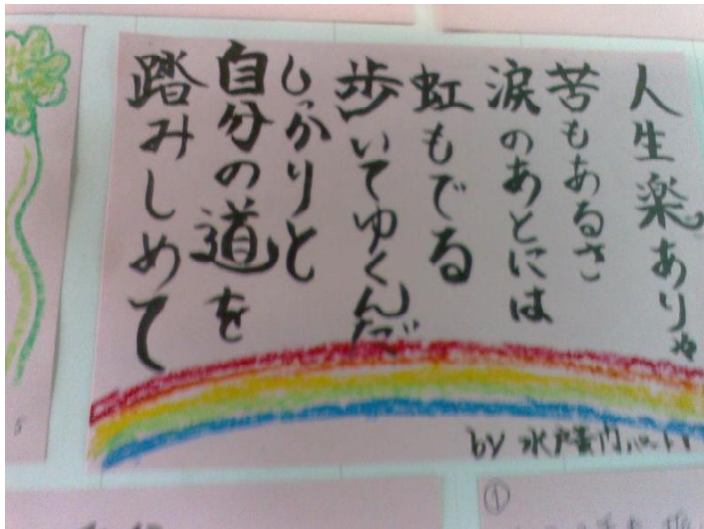 人生楽ありゃ
苦もあるさ
涙のあとには
虹もでる
歩いてゆくんだ
しっかりと
自分の道を
踏みしめて
by 水戸黄門
5
①